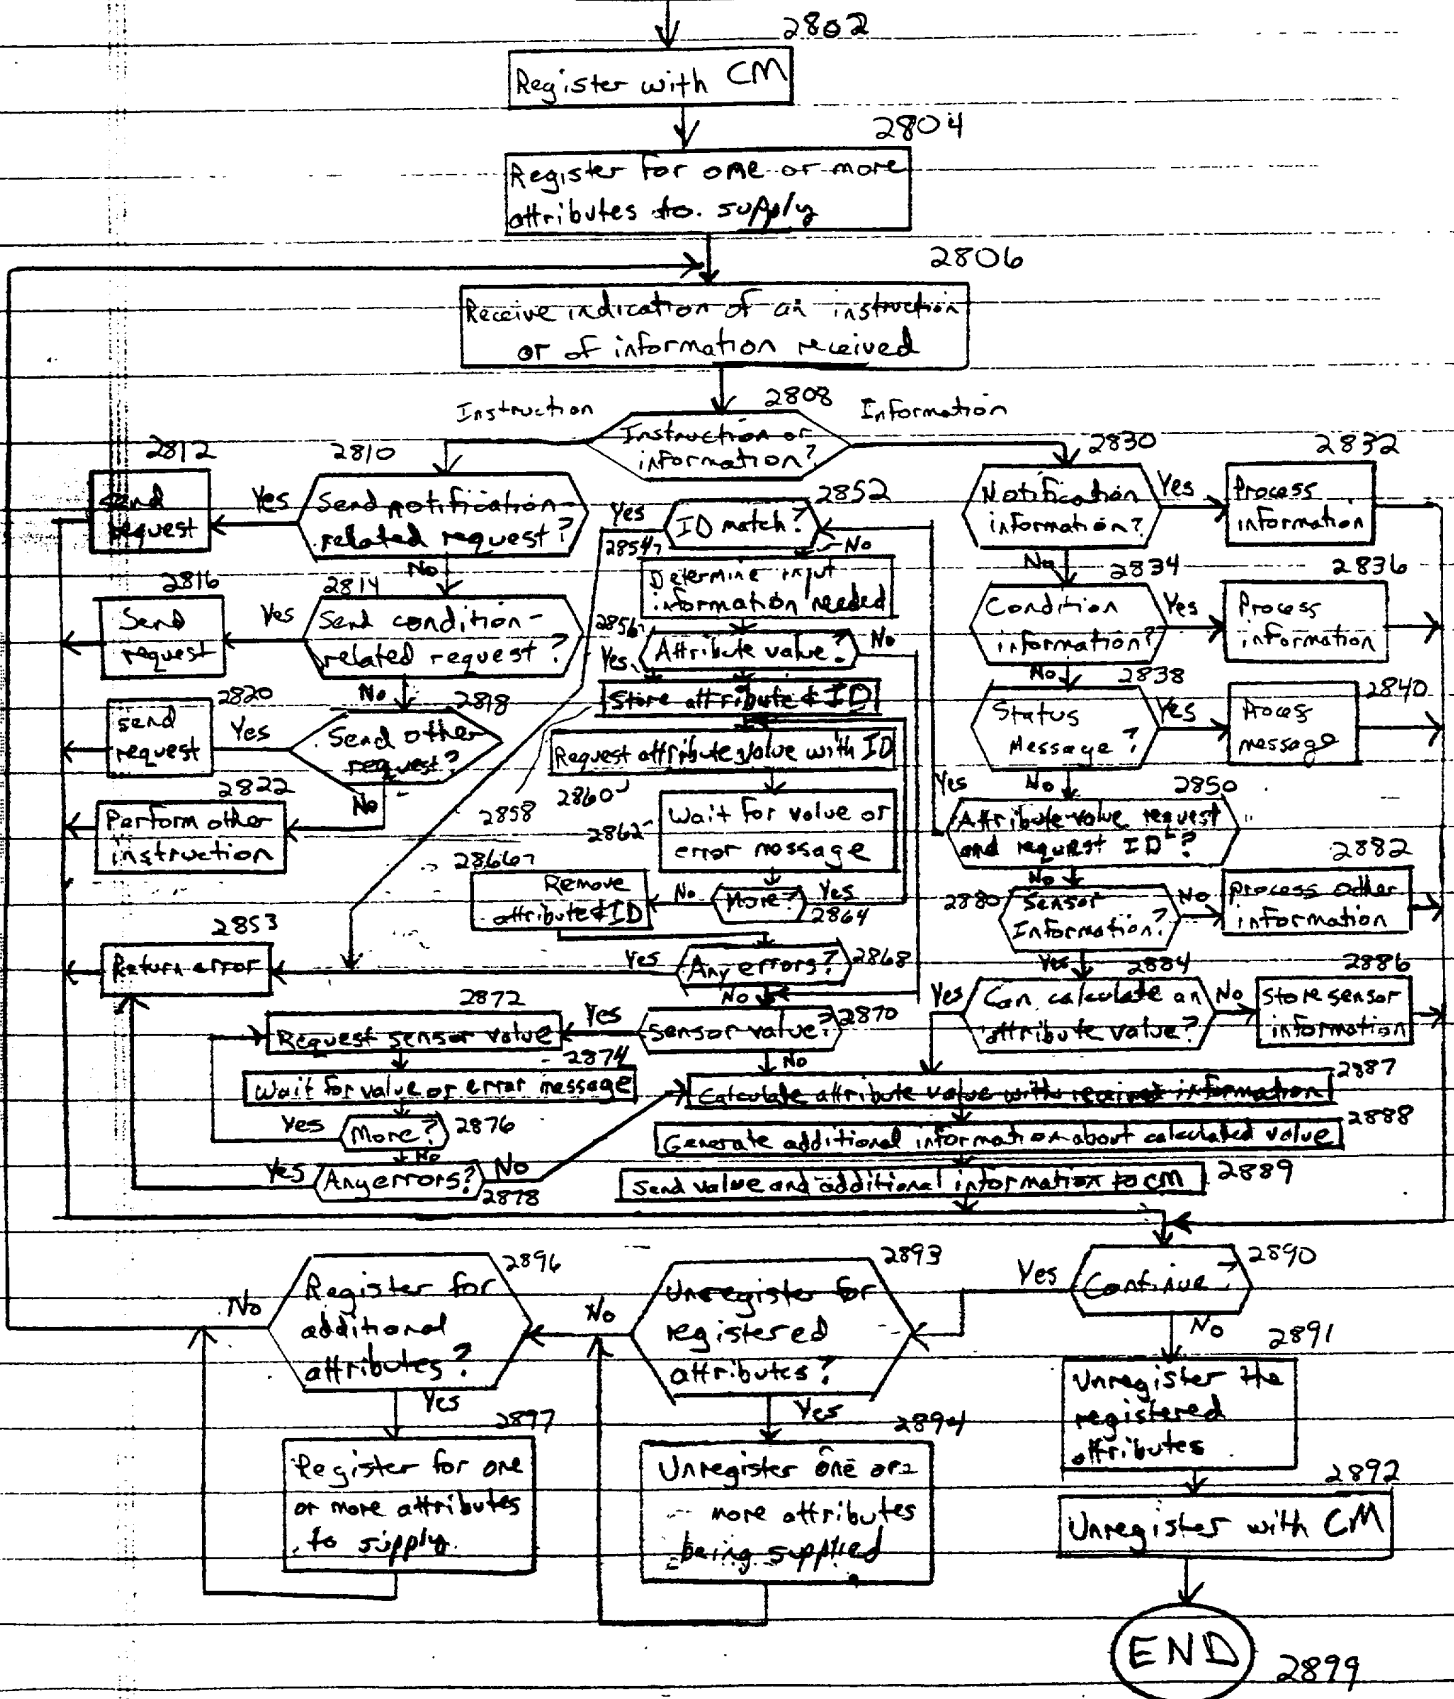 2802
Register with CM
2804
Register for one or more
attributes to supply
2806
Receive indication of an instruction
or of information received
2808
Instruction
Information
Instruction or
information?
2812
Send
request
Yes
2810
Send notification-
related request?
No
2816
Send
request
Yes
2814
Send condition-
related request?
No
2820
Send
request
Yes
2818
Send other
request?
No
2822
Perform other
instruction
2852
Yes
ID match?
No
2854
Determine input
information needed
2856
Attribute value?
No
Yes
Store attribute & ID
2858
Request attribute value with ID
2860
2862
Wait for value or
error message
2866
Remove
attribute & ID
No
More?
Yes
2864
2853
Return error
Yes
Any errors?
2868
No
2872
Request sensor value
Yes
Sensor value?
2870
No
2874
Wait for value or error message
Yes
More?
2876
No
Yes
Any errors?
No
2878
2830
Notification
information?
Yes
2832
Process
information
No
2834
Condition
information?
Yes
2836
Process
information
No
2838
Status
Message?
Yes
2840
Process
message
No
2850
Yes
Attribute value request
and request ID?
No
2880
Sensor
Information?
No
2882
Process other
information
Yes
2884
Yes
Can calculate an
attribute value?
No
2886
Store sensor
information
2887
Calculate attribute value with received information
2888
Generate additional information about calculated value
2889
Send value and additional information to CM
2890
Continue?
Yes
No
2891
Unregister the
registered
attributes
2892
Unregister with CM
END
2899
2893
Unregister for
registered
attributes?
No
Yes
2894
Unregister one or
more attributes
being supplied
2896
Register for
additional
attributes?
No
Yes
2897
Register for one
or more attributes
to supply